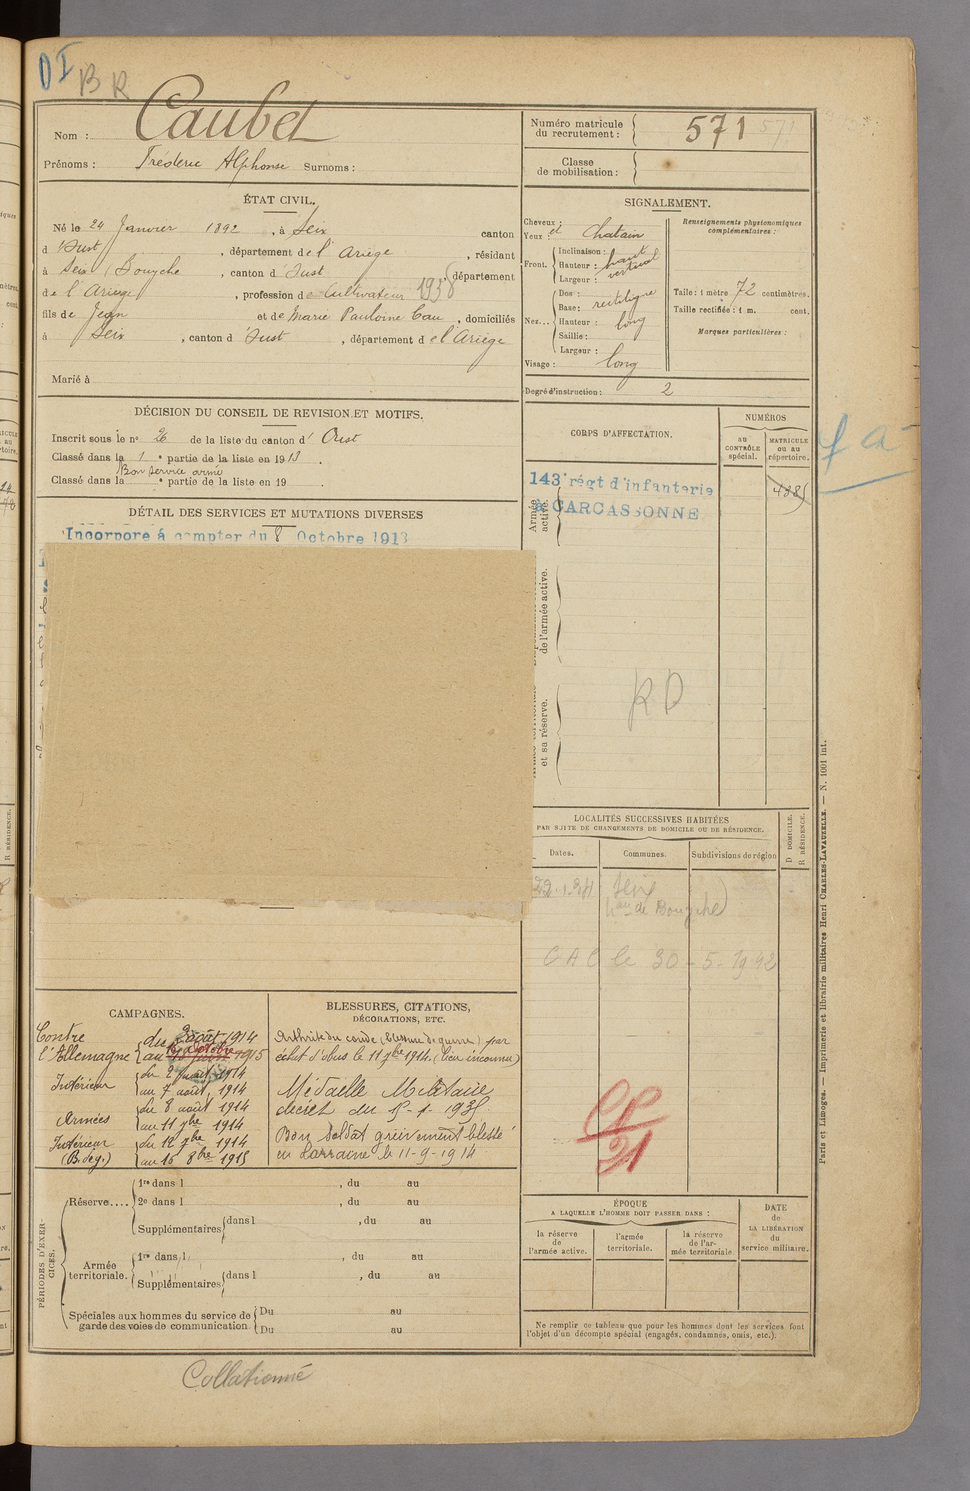 DI
BR
Nom : Caubet
Prénoms : Fréderic Alphonse Surnoms :
Numéro matricule du recrutement : 571 571
Classe de mobilisation :
ÉTAT CIVIL.
Né le 24 Janvier 1892, à Seix canton
d'Oust, département de l'Ariège, résidant
à Seix (Bouyche, canton d'Oust département
de l'Ariège, profession de Cultivateur 1938
fils de Jean et de Marie Pauloine Cau, domiciliés
à Seix, canton d'Oust, département de l'Ariège
Marié à
SIGNALEMENT.
Cheveux :
Yeux : et chatain
Front. Inclinaison :
Hauteur : haut
Largeur : vertical
Nez... Dos : rectiligne
Base :
Hauteur : long
Saillie :
Largeur :
Visage : long
Renseignements physionomiques complémentaires :
Taille : 1 mètre 72 centimètres.
Taille rectifiée : 1 m. cent.
Marques particulières :
Degré d'instruction : 2
DÉCISION DU CONSEIL DE REVISION ET MOTIFS.
Inscrit sous le n° 26 de la liste du canton d'Oust
Classé dans la 1e partie de la liste en 1913.
Bon service armé
Classé dans la e partie de la liste en 19 .
DÉTAIL DES SERVICES ET MUTATIONS DIVERSES
Incorporé à compter du 8 Octobre 1913
CORPS D'AFFECTATION.
NUMÉROS
au CONTRÔLE spécial.
MATRICULE ou au répertoire.
Armée active.
143e régt d'infanterie
à CARCASSONNE
4885
de l'armée active.
et sa réserve.
RD
LOCALITÉS SUCCESSIVES HABITÉES
PAR SUITE DE CHANGEMENTS DE DOMICILE OU DE RÉSIDENCE.
Dates.
Communes.
Subdivisions de région
D DOMICILE.
R RÉSIDENCE.
Seix
de Bouyche)
CAC le 30-5-1942
CAMPAGNES.
Contre l'Allemagne du 2 août 1914
au 1915
Intérieur du 2 août 1914
au 7 août 1914
Armées du 8 août 1914
au 11 7bre 1914
Intérieur (B. deg.) du 12 7bre 1914
au 16 8bre 1915
BLESSURES, CITATIONS,
DÉCORATIONS, ETC.
Arthrite du coude (Blessure de guerre) par
éclat d'obus le 11 7bre 1914. (lieu inconnu)
Médaille Militaire
décret du
Bon soldat grièvement blessé
en Lorraine le 11-9-1914
21
PÉRIODES D'EXERCICES.
Réserve.... 1re dans l , du au
2e dans l , du au
Supplémentaires dans l , du au
Armée territoriale. 1re dans l , du au
Supplémentaires dans l , du au
Spéciales aux hommes du service de garde des voies de communication. Du au
Du au
ÉPOQUE
A LAQUELLE L'HOMME DOIT PASSER DANS :
la réserve de l'armée active.
l'armée territoriale.
la réserve de l'armée territoriale
DATE de LA LIBÉRATION du service militaire.
Ne remplir ce tableau que pour les hommes dont les services font
l'objet d'un décompte spécial (engagés, condamnés, omis, etc.).
Paris et Limoges. — Imprimerie et librairie militaires Henri CHARLES-LAVAUZELLE. — N. 1001 int.
Collationné